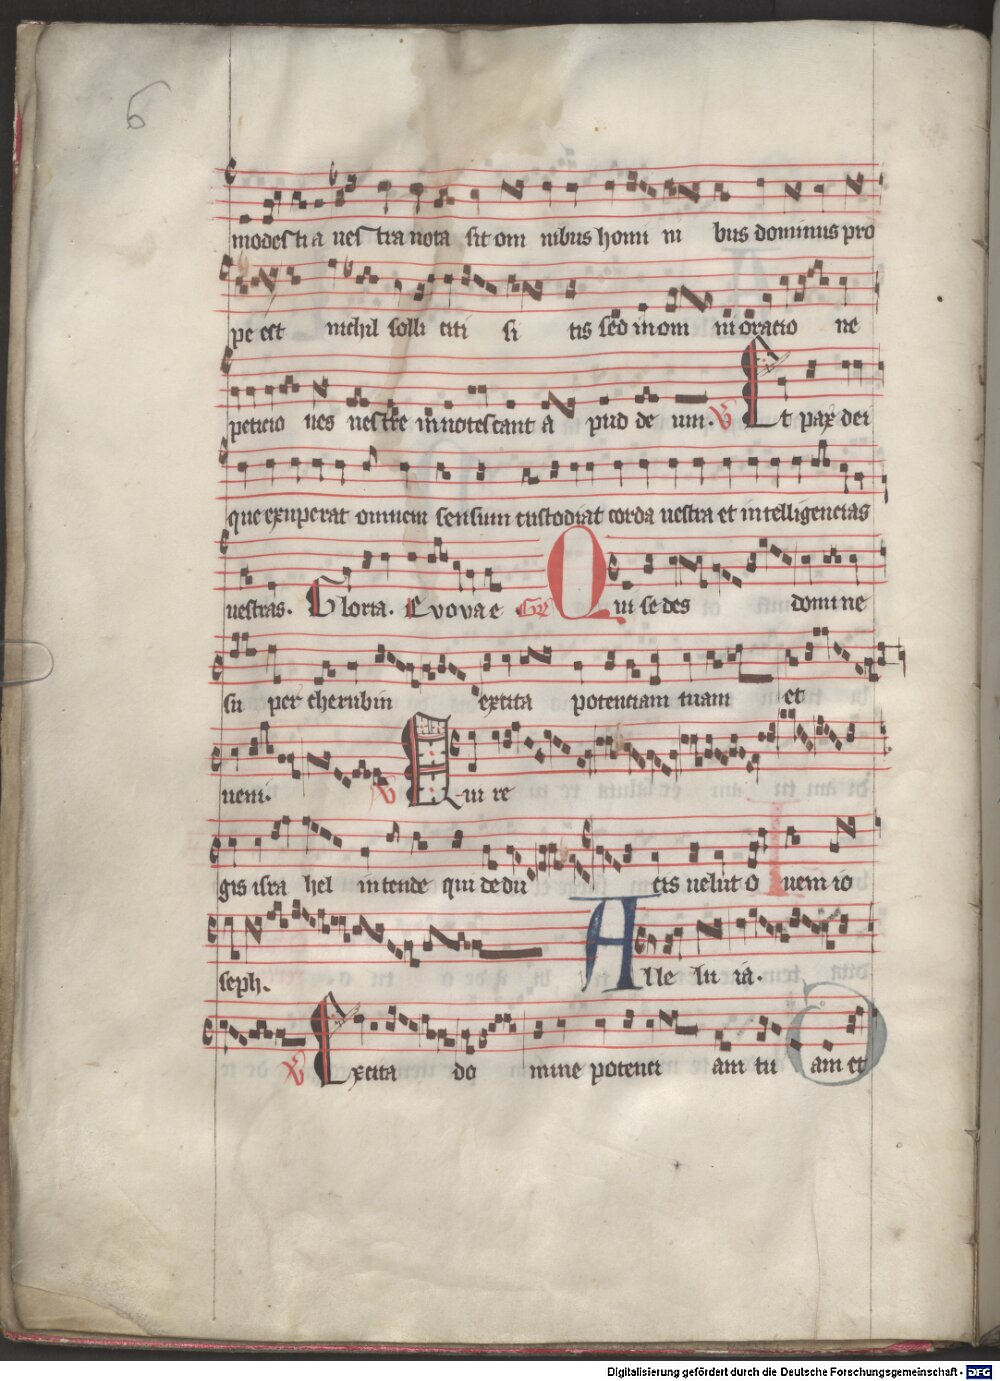 6
modestia vestra nota sit om nibus homi ni bus dominus pro
pe est nichil solli citi si tis sed in om ni oracio ne
peticio nes vestre innotescant a pud de um. V Et pax dei
que exuperat omnem sensum custodiat corda vestra et intelligencias
vestras. Gloria. Evovae Gr Qui sedes domine
su per cherubin excita potenciam tuam et
veni. V Qui re
gis isra hel intende qui dedu cis velut o vem io
seph. Alle lu ia.
V Excita do mine potenci am tu am et
Digitalisierung gefördert durch die Deutsche Forschungsgemeinschaft - DFG